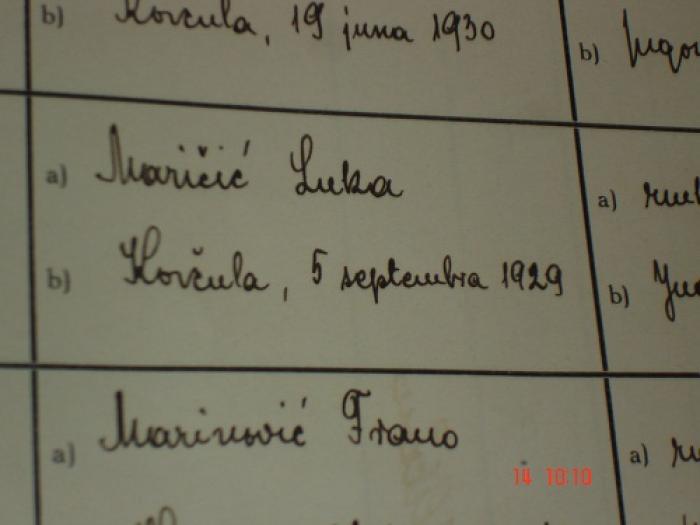 b) Korčula, 19 juna 1930
b)
a) Maričić Luka
a)
b) Korčula, 5 septembra 1929
b)
a) Marinović Frano
a)
14 10:10